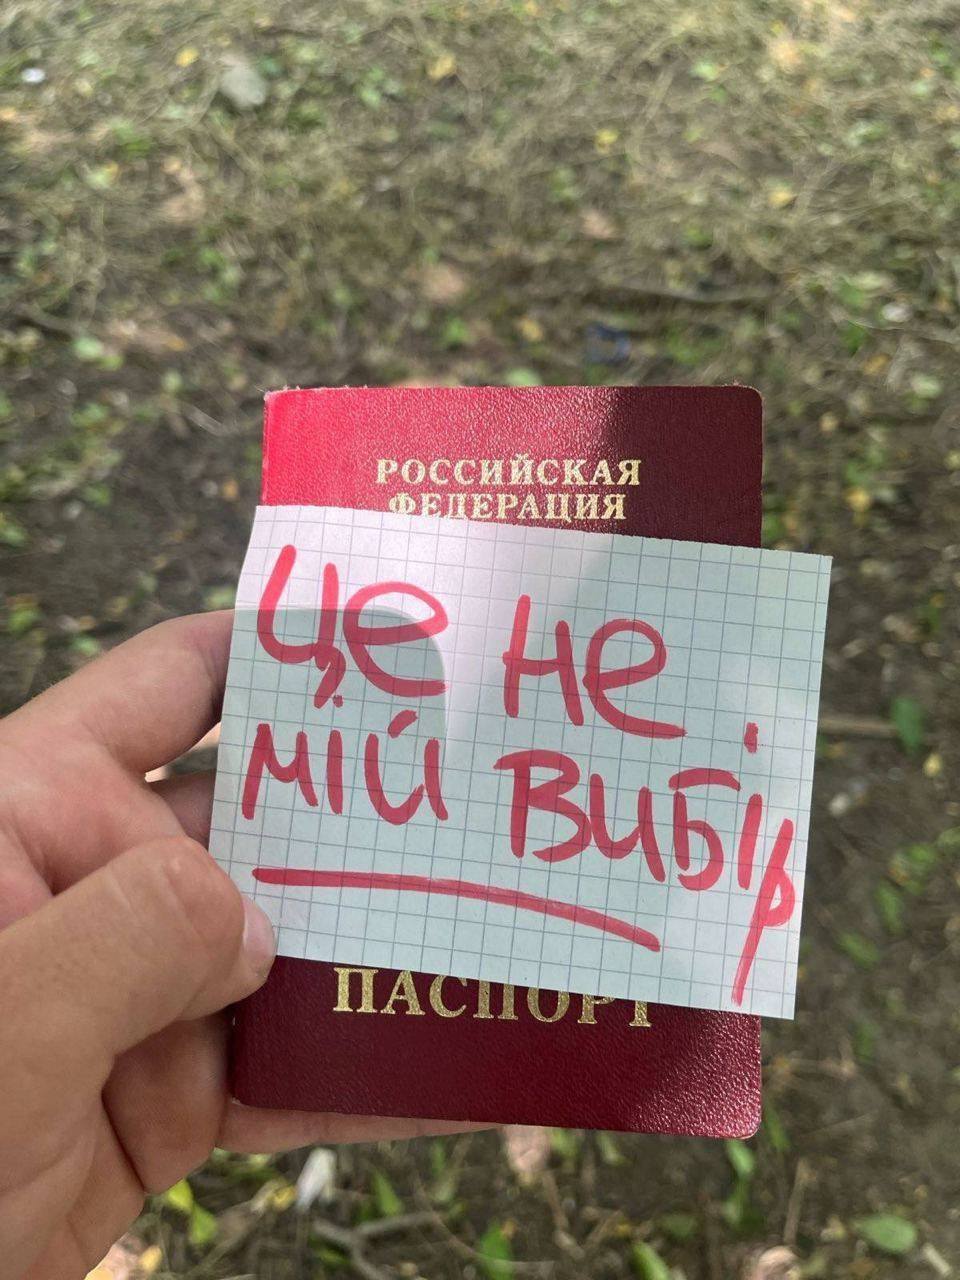 РОССИЙСКАЯ
ФЕДЕРАЦИЯ
Це не
мій вибір
ПАСПОРТ